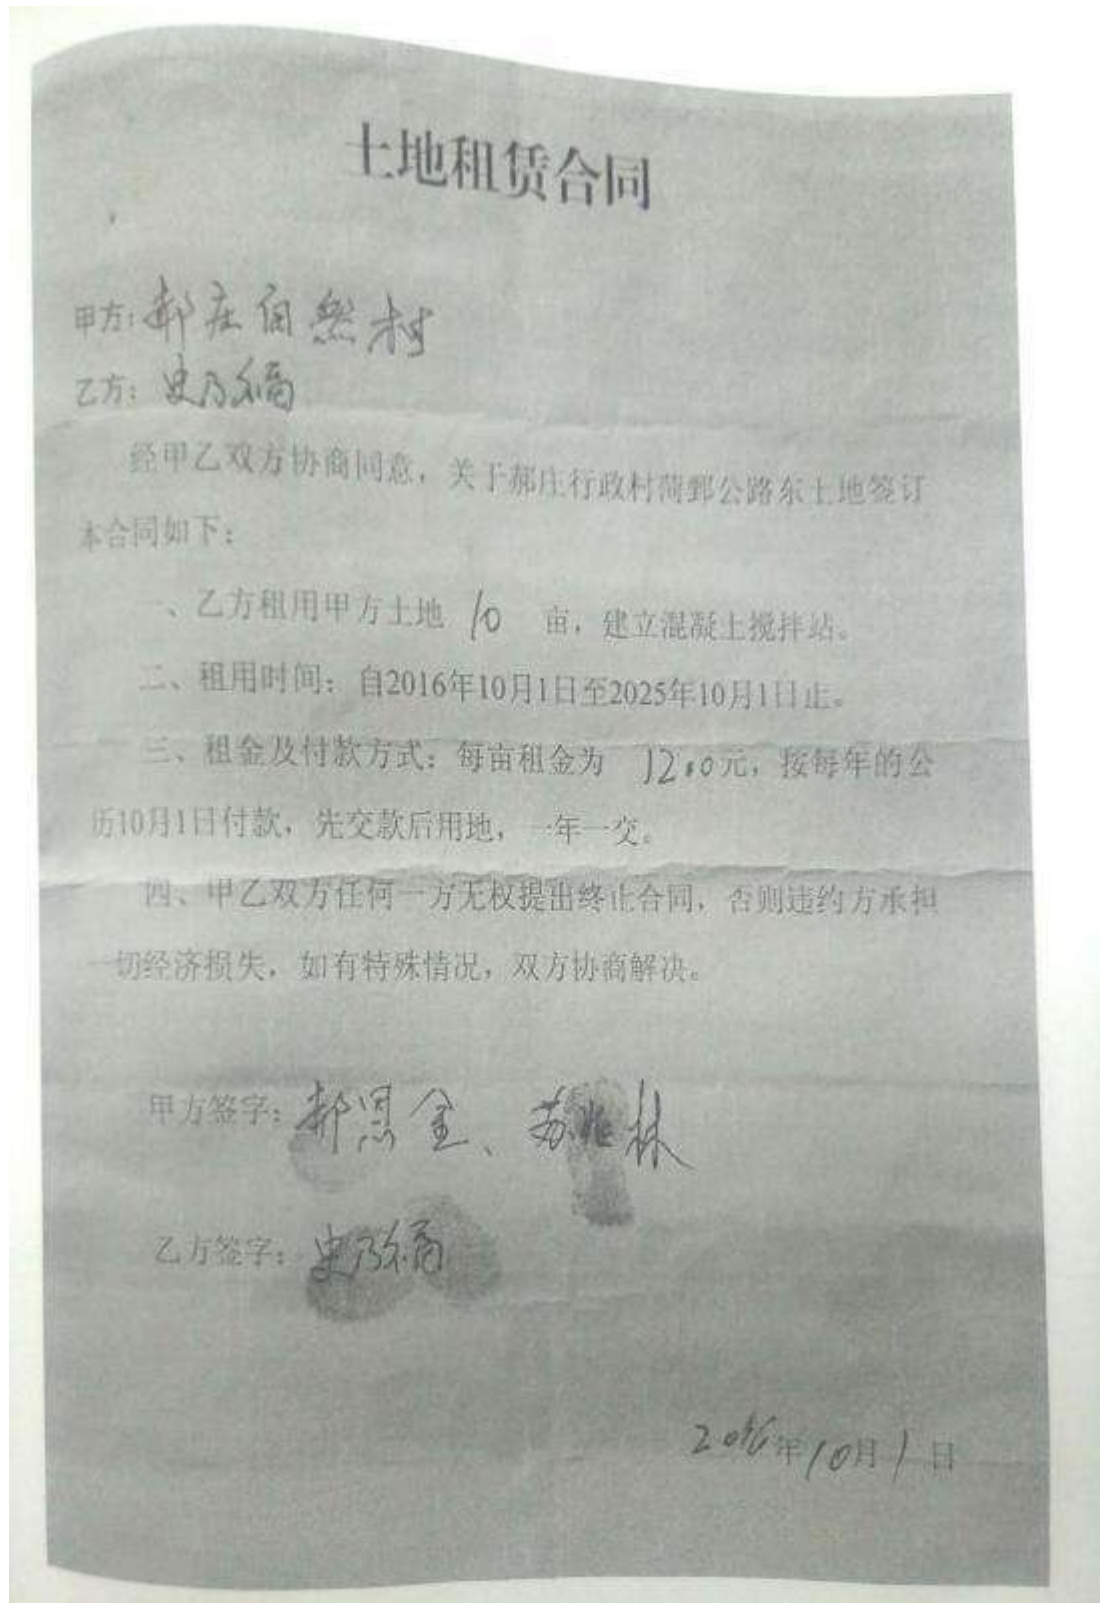 土地租赁合同
甲方：郝庄自然村
乙方：史乃
经甲乙双方协商同意，关于郝庄行政村菏鄄公路东土地签订
本合同如下：
一、乙方租用甲方土地 10 亩，建立混凝土搅拌站。
二、租用时间：自2016年10月1日至2025年10月1日止。
三、租金及付款方式：每亩租金为 1200元，按每年的公
历10月1日付款，先交款后用地，一年一交。
四、甲乙双方任何一方无权提出终止合同，否则违约方承担
一切经济损失，如有特殊情况，双方协商解决。
甲方签字：郝恩金、苏兆林
乙方签字：史乃
2016年10月1日